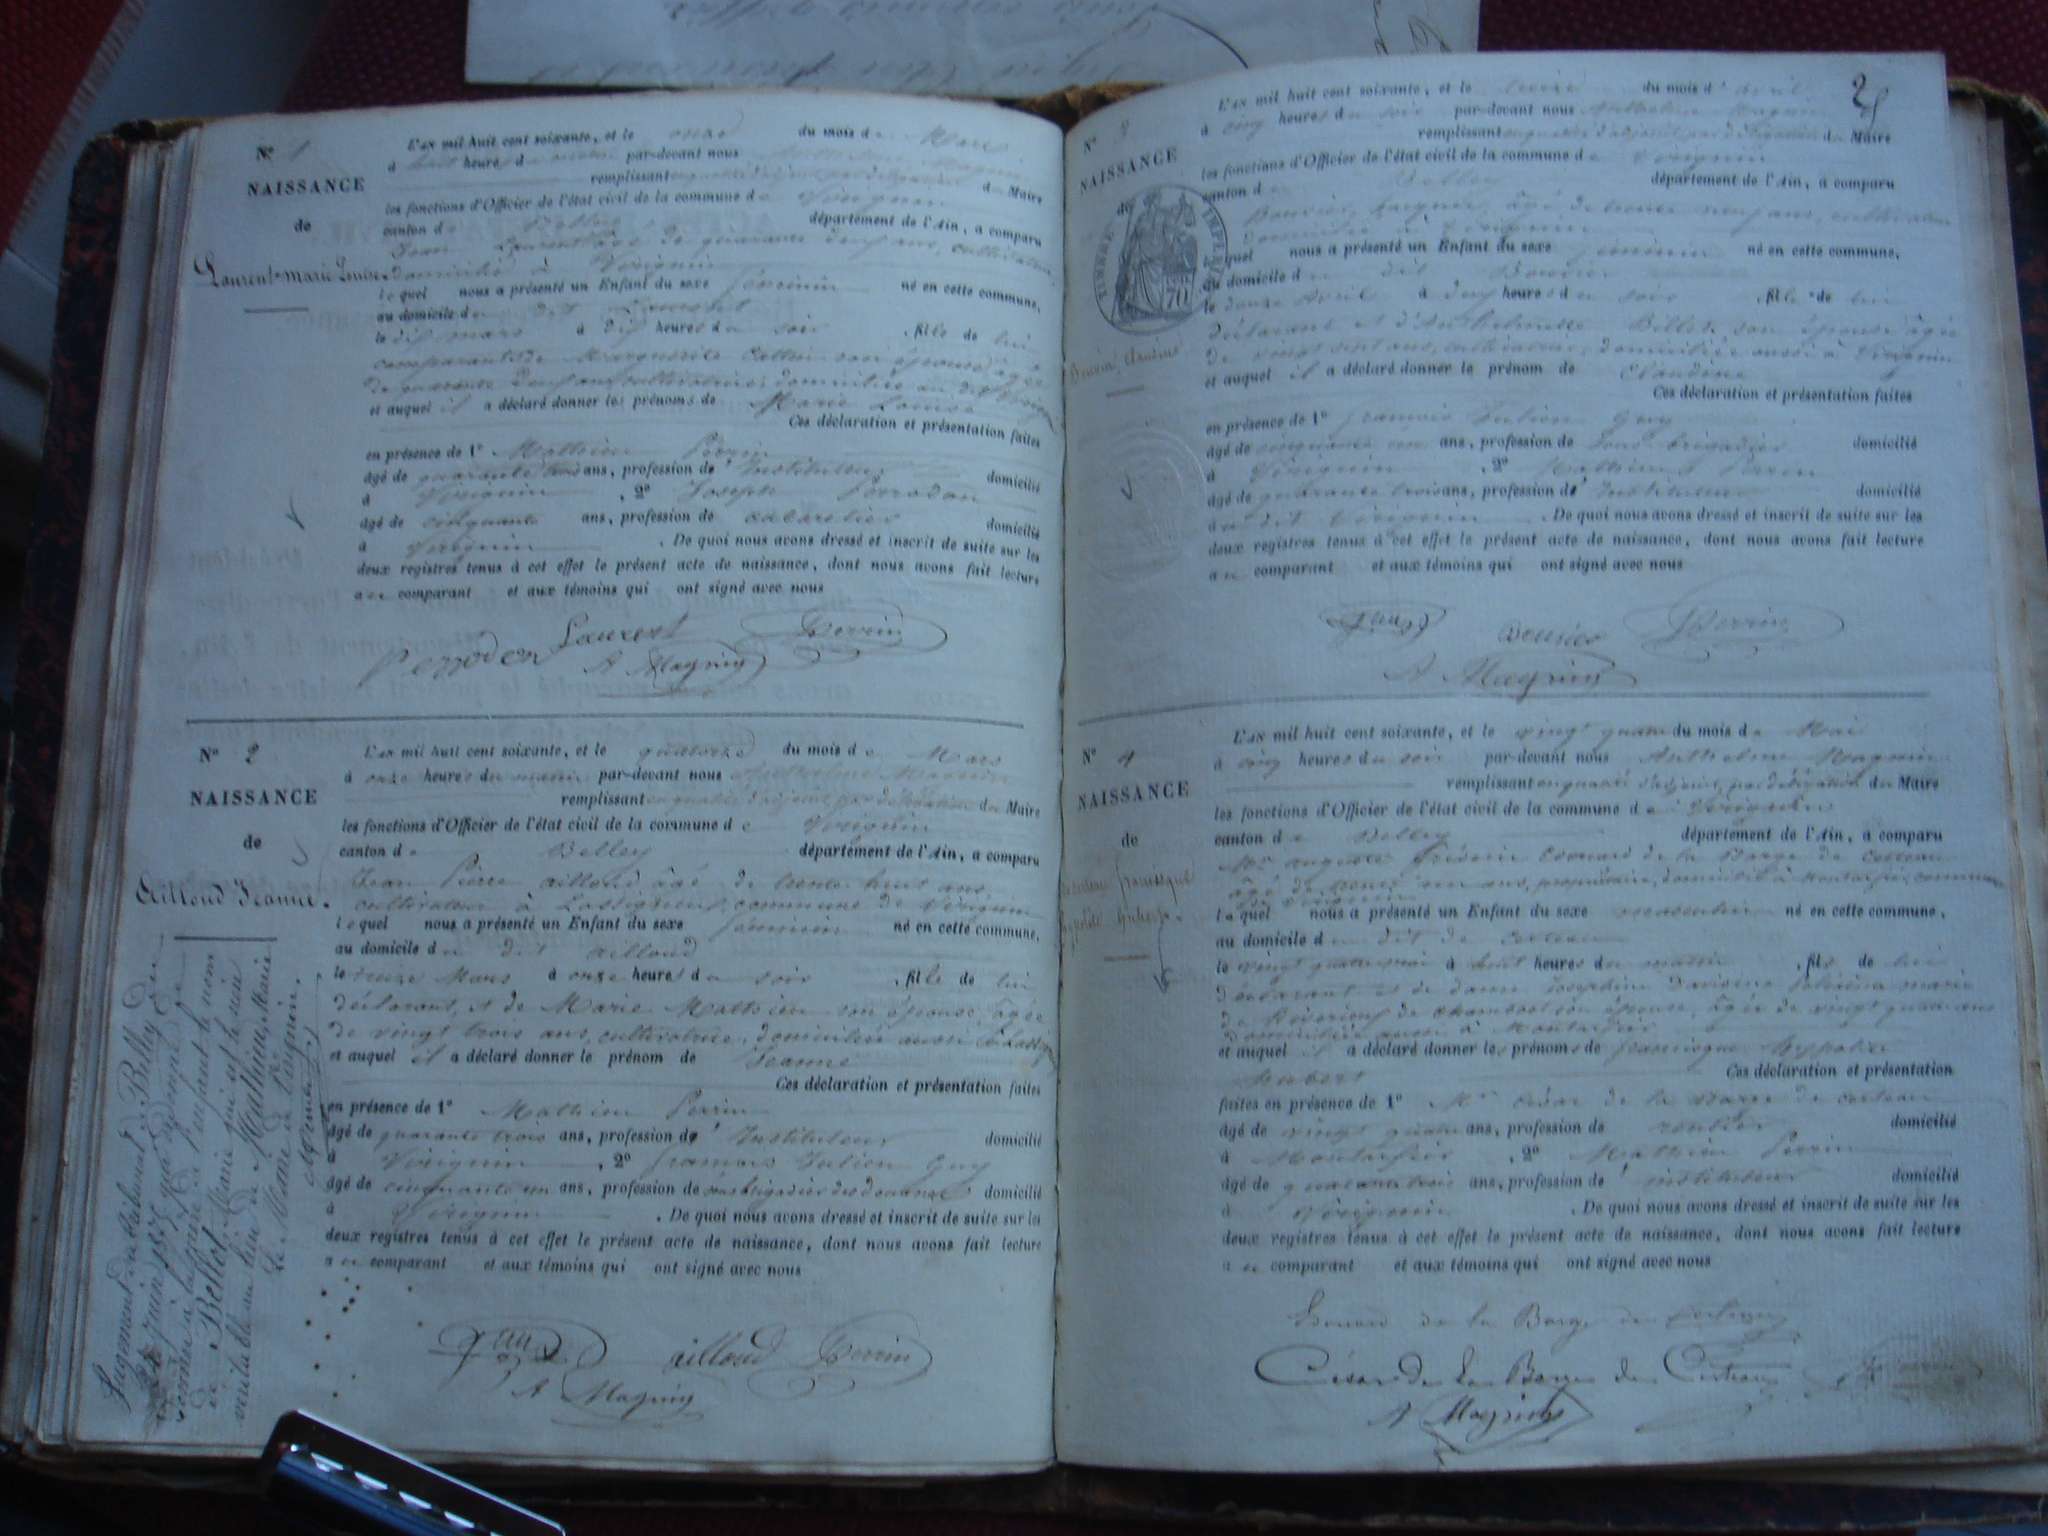 Nº 1
NAISSANCE
de
Laurent marie Louise.
L'AN mil huit cent soixante, et le onze du mois de Mars
à huit heures du par-devant nous
remplissant du Maire
les fonctions d'Officier de l'état civil de la commune de Virignin
canton de Belley département de l'Ain, a comparu
Jean Laurent âgé de quarante deux ans, cultivateur
domicilié à Virignin
lequel nous a présenté un Enfant du sexe féminin né en cette commune,
au domicile du dit Laurent
le dix mars à dix heures du soir , fille de lui
comparant et de Marguerite son épouse âgée
de quarante deux ans cultivatrice, domiciliée au dit Virignin
et auquel il a déclaré donner les prénoms de Marie Louise
Ces déclaration et présentation faites
en présence de 1º Mathieu Perrin
âgé de quarante trois ans, profession d'Instituteur domicilié
à Virignin , 2º Joseph Perrodon
âgé de cinquante ans, profession de cabaretier domicilié
à Virignin . De quoi nous avons dressé et inscrit de suite sur les
deux registres tenus à cet effet le présent acte de naissance, dont nous avons fait lecture
au comparant et aux témoins qui ont signé avec nous
Perrodon Laurent Perrin
A Magnin
Nº 2
NAISSANCE
de
Ailloud Jeanne.
L'AN mil huit cent soixante, et le quatorze du mois de Mars
à onze heures du matin par-devant nous Anthelme Magnin
remplissant en qualité d'adjoint par délégation du Maire
les fonctions d'Officier de l'état civil de la commune de Virignin
canton de Belley département de l'Ain, a comparu
Jean Pierre Ailloud âgé de trente huit ans
cultivateur à commune de Virignin
lequel nous a présenté un Enfant du sexe féminin né en cette commune,
au domicile du dit Ailloud
le treize Mars à onze heures du soir , fille de lui
déclarant, et de Marie Mathieu son épouse, âgée
de vingt trois ans, cultivatrice, domiciliée aussi à
et auquel il a déclaré donner le prénom de Jeanne
Ces déclaration et présentation faites
en présence de 1º Mathieu Perrin
âgé de quarante trois ans, profession d'Instituteur domicilié
à Virignin , 2º François Julien Guy
âgé de cinquante un ans, profession de sous brigadier des douanes domicilié
à Virignin . De quoi nous avons dressé et inscrit de suite sur les
deux registres tenus à cet effet le présent acte de naissance, dont nous avons fait lecture
au comparant et aux témoins qui ont signé avec nous
Guy ailloud Perrin
A Magnin
Jugement du tribunal de Belley du
juin 187 qui
à la mère de l'enfant le nom
de Bellot Marie qui est le sien
véritable au lieu de Mathieu, Marie
Le Maire de Virignin.
25
Nº 3
NAISSANCE
de
TIMBRE IMPERIAL
Bouvier Claudine
L'AN mil huit cent soixante, et le treize du mois d'avril
à cinq heures du soir par-devant nous Anthelme Magnin
remplissant en qualité d'adjoint par délégation du Maire
les fonctions d'Officier de l'état civil de la commune de Virignin
canton de Belley département de l'Ain, a comparu
Bouvier, âgé de trente neuf ans, cultivateur
domicilié à Virignin
lequel nous a présenté un Enfant du sexe féminin né en cette commune,
au domicile du dit Bouvier
le douze Avril à deux heures du soir , fille de lui
déclarant et d'Anthelmette Billet son épouse âgée
de vingt sept ans, cultivatrice, domiciliée aussi à Virignin
et auquel il a déclaré donner le prénom de Claudine
Ces déclaration et présentation faites
en présence de 1º François Julien Guy
âgé de cinquante un ans, profession de sous brigadier domicilié
à Virignin , 2º Mathieu Perrin
âgé de quarante trois ans, profession d'Instituteur domicilié
au dit Virignin . De quoi nous avons dressé et inscrit de suite sur les
deux registres tenus à cet effet le présent acte de naissance, dont nous avons fait lecture
au comparant et aux témoins qui ont signé avec nous
Guy Bouvier Perrin
A Magnin
Nº 4
NAISSANCE
de
francisque
L'AN mil huit cent soixante, et le vingt quatre du mois de Mai
à cinq heures du soir par-devant nous Anthelme Magnin
remplissant en qualité d'adjoint par délégation du Maire
les fonctions d'Officier de l'état civil de la commune de Virignin
canton de Belley département de l'Ain, a comparu
Mr auguste frédéric Edouard de la Barge de Certeau
âgé de trente un ans, propriétaire, domicilié à commune
de Virignin
lequel nous a présenté un Enfant du sexe masculin né en cette commune,
au domicile du dit de Certeau
le vingt quatre mai à huit heures du matin , fils de lui
déclarant et de dame Joséphine marie
de épouse, âgée de vingt quatre ans
domiciliée aussi à
et auquel il a déclaré donner les prénoms de francisque Hypolite
Hubert Ces déclaration et présentation
faites en présence de 1º Mr César de la Barge de Certeau
âgé de vingt quatre ans, profession de rentier domicilié
à , 2º Mathieu Perrin
âgé de quarante trois ans, profession d'instituteur domicilié
à Virignin . De quoi nous avons dressé et inscrit de suite sur les
deux registres tenus à cet effet le présent acte de naissance, dont nous avons fait lecture
au comparant et aux témoins qui ont signé avec nous
Edouard de la Barge de Certeau
César de La Barge de Certeau Perrin
A Magnin